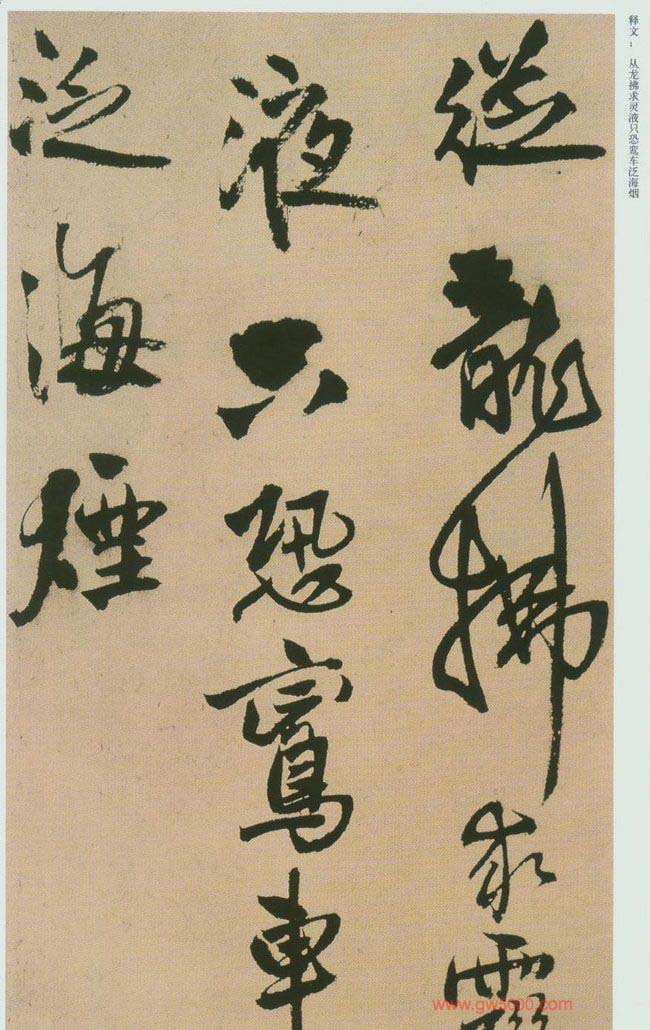 释文：从龙拂求灵液只恐鸾车泛海烟
從龍拂求靈
液只恐鸞車
泛海煙
www.gw5000.com